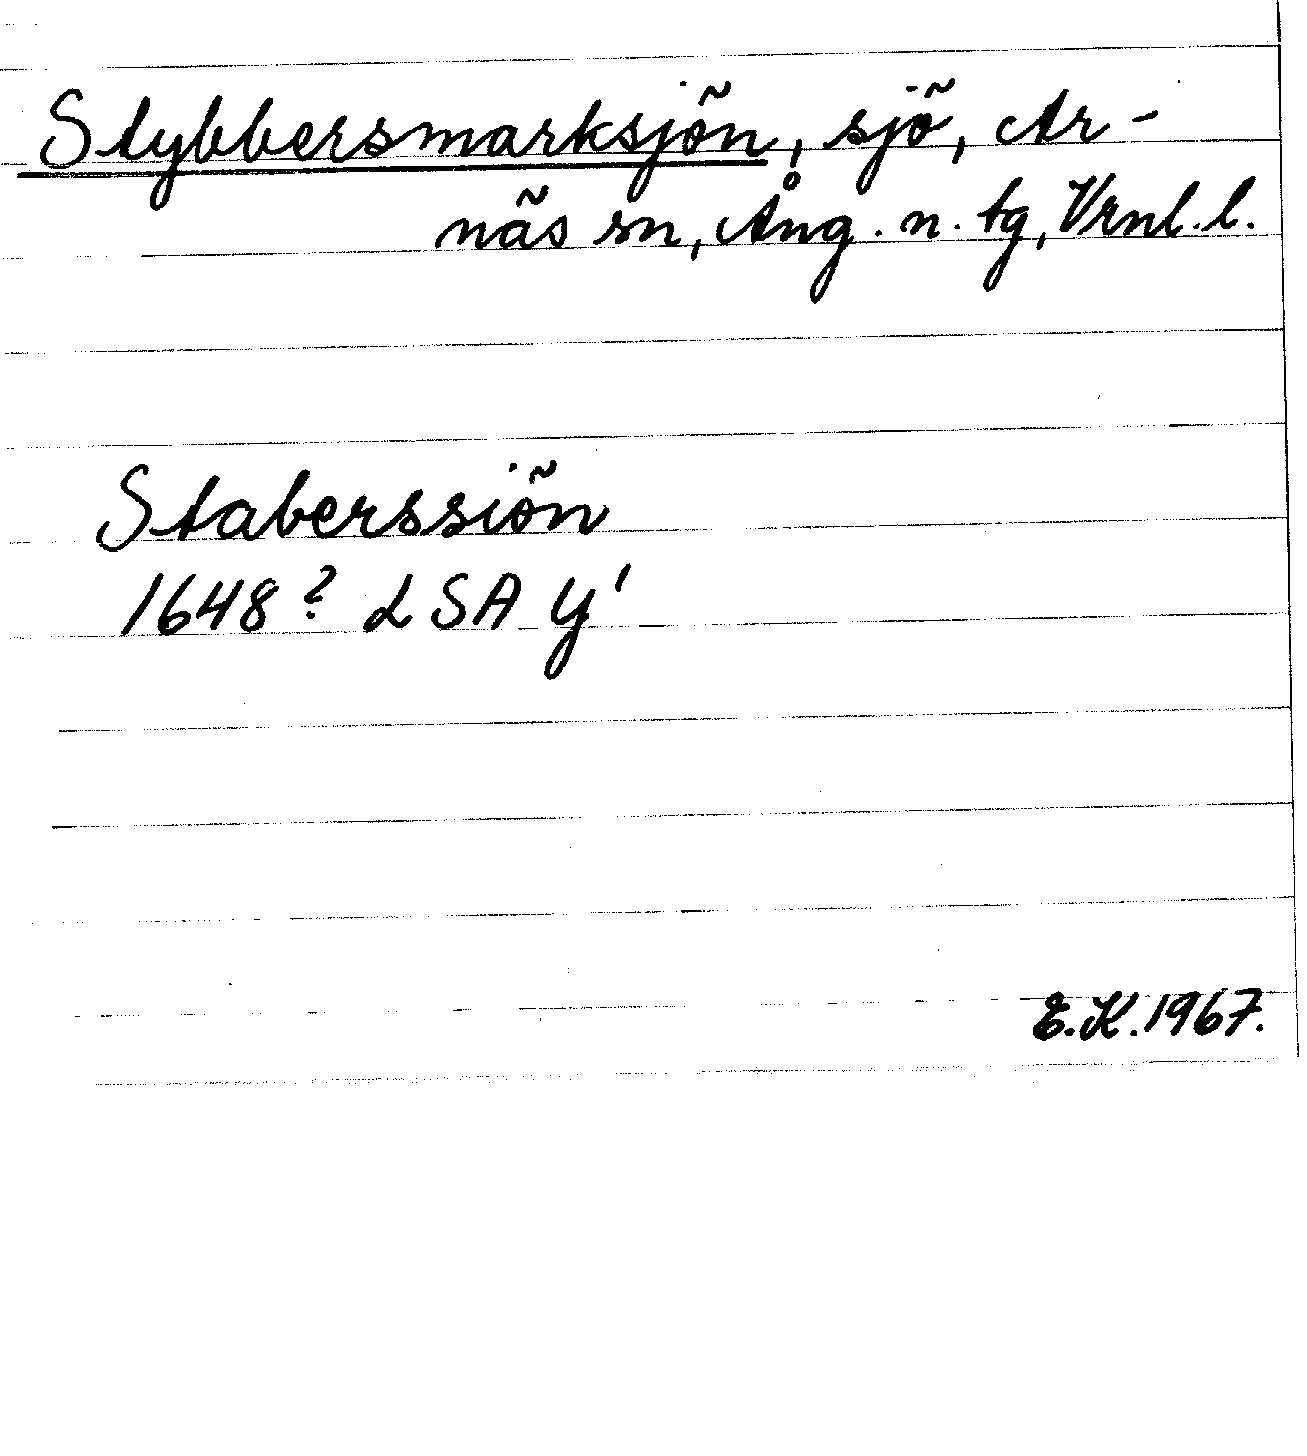 Stybbersmarksjön, sjö, Ar-
näs sn, Ång. n. tg, Vrnl. l.
Staberssiön
1648? LSA Y¹
E.K. 1967.